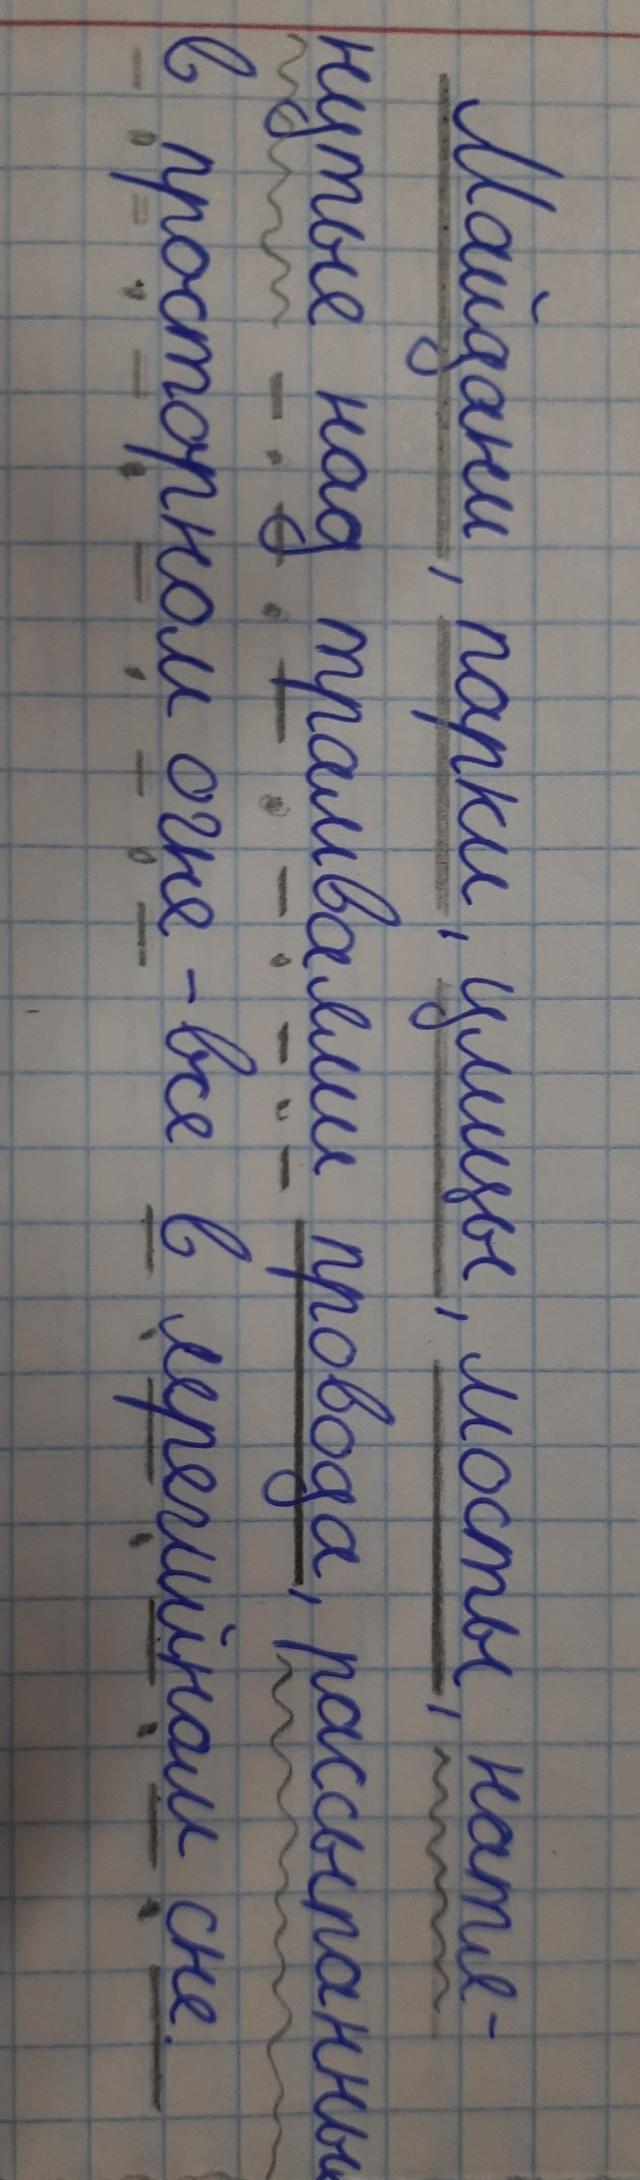 Майдани, парки, улицы, мосты, натя-
нутые над трамваями провода, рассыпанные
в просторном огне - все в мерегийном сне.